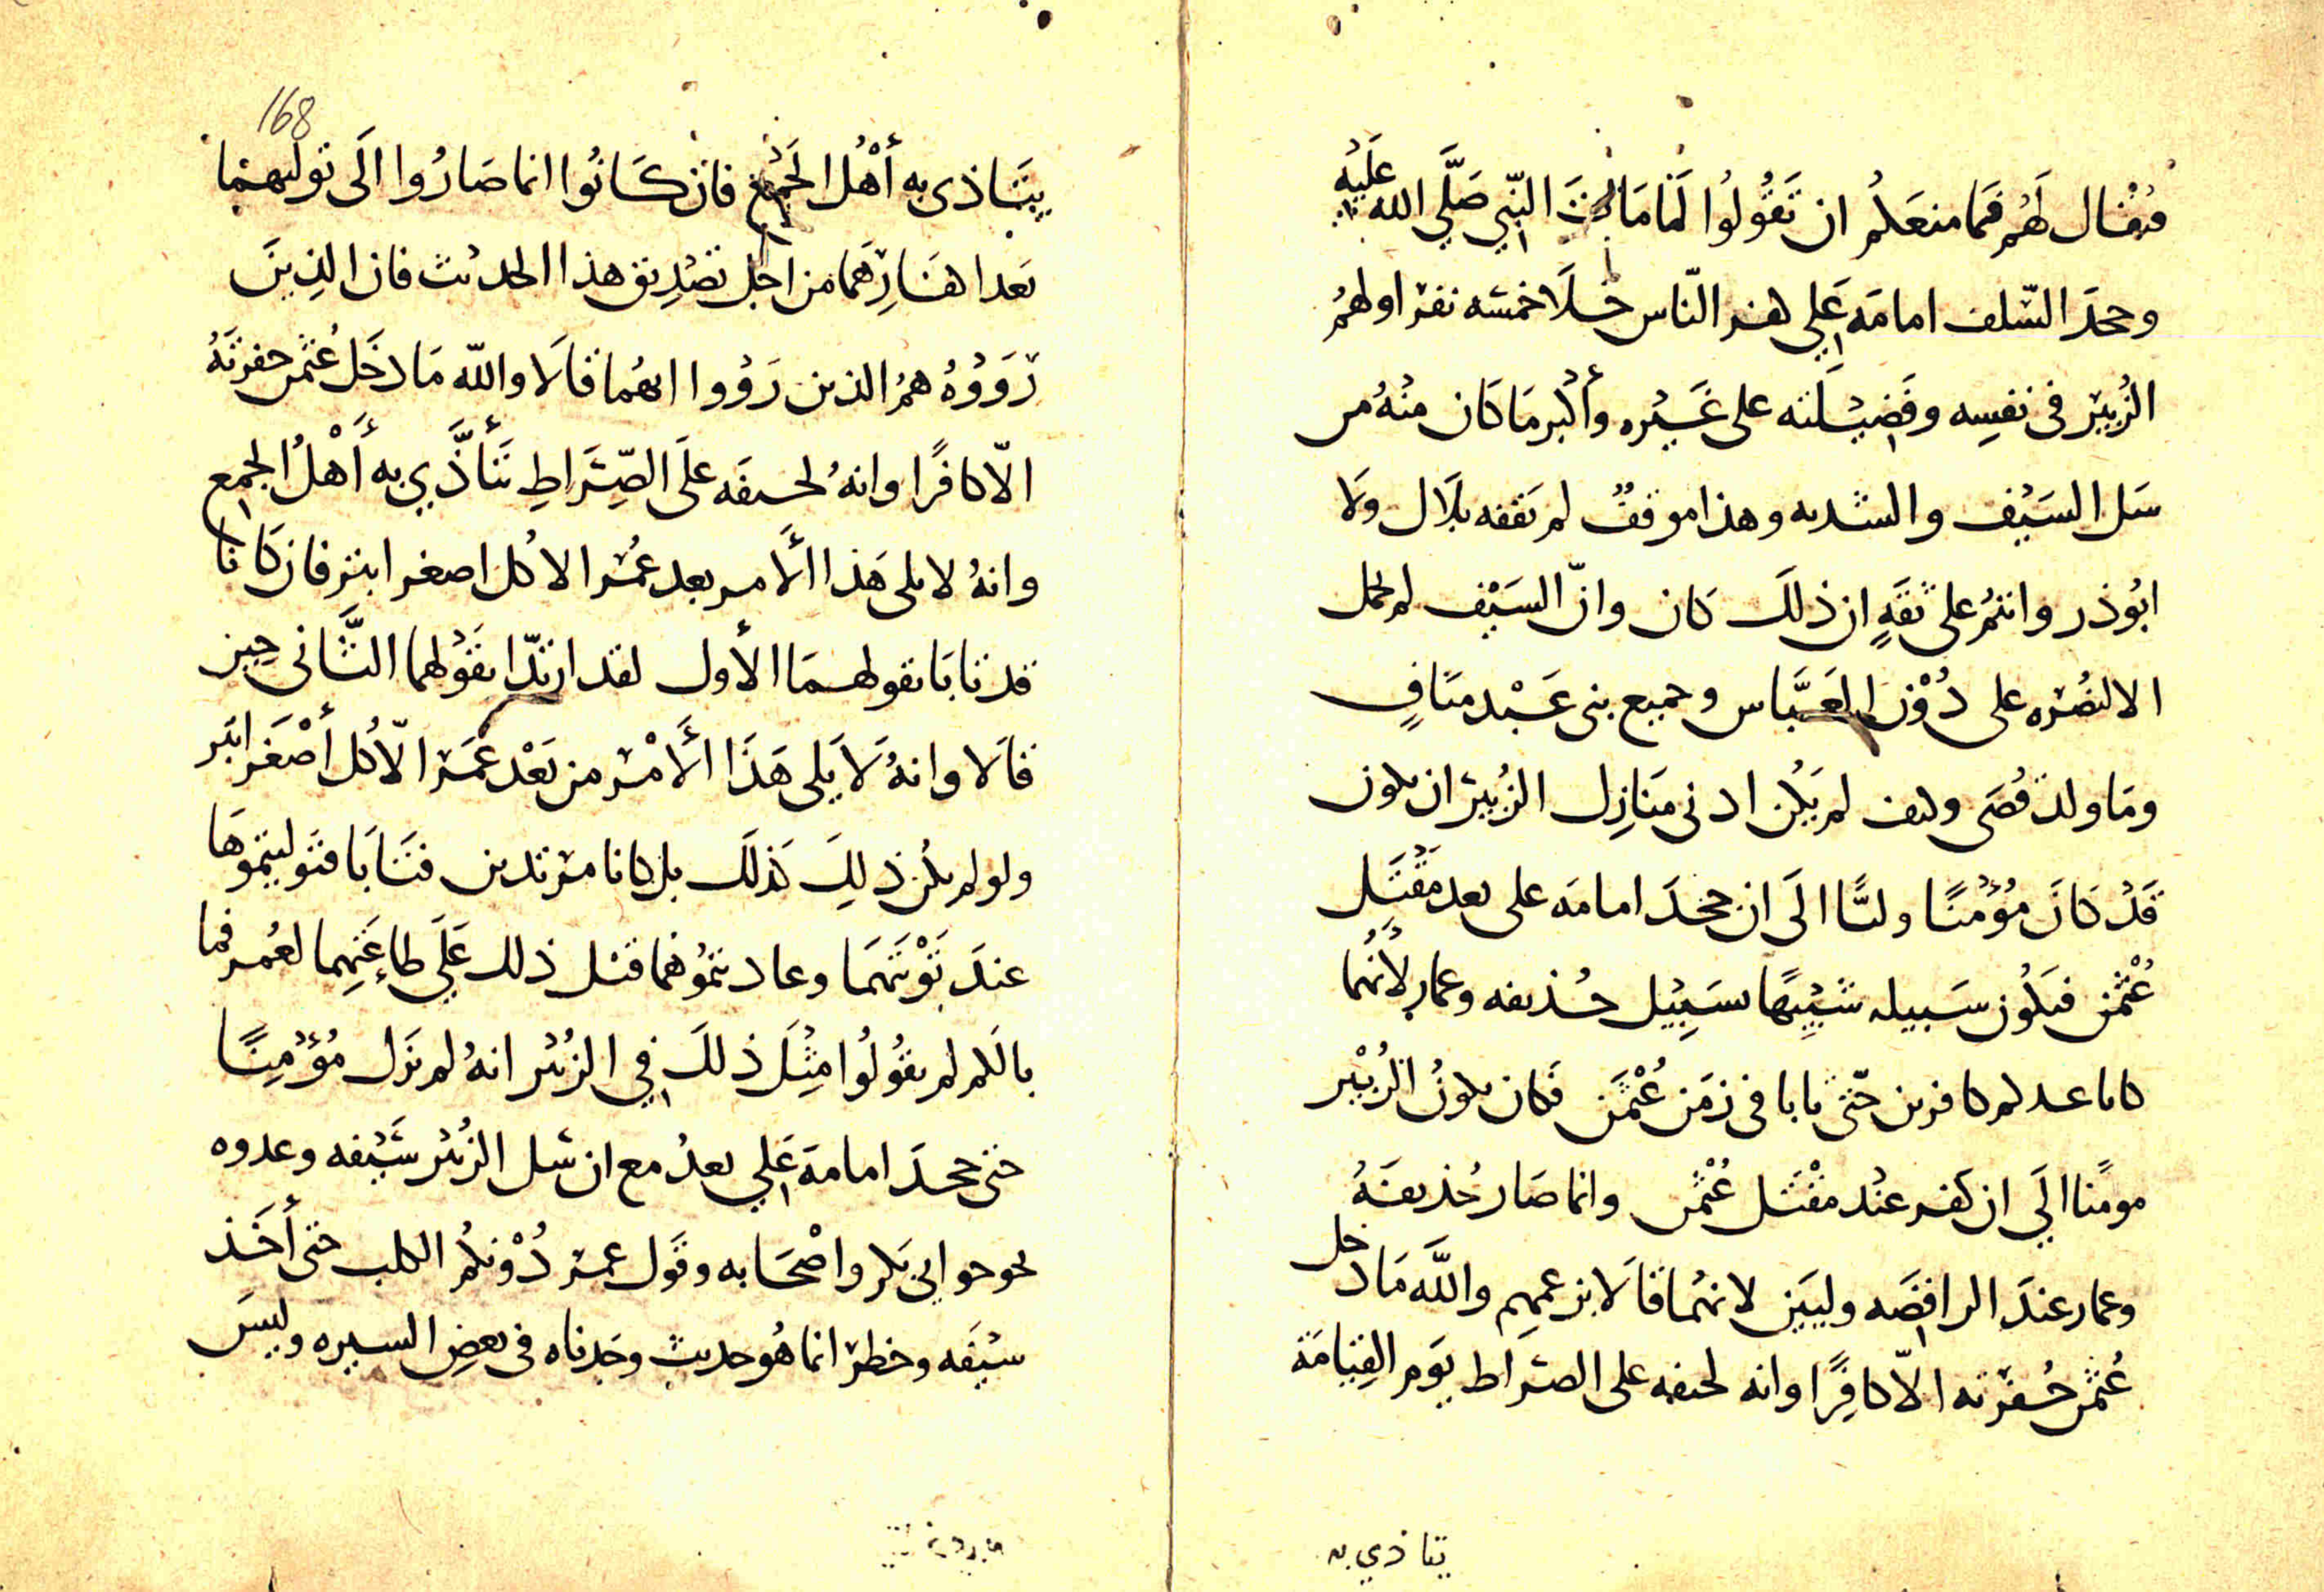 فيقال لهم فما منعكم ان تقولوا لما مات النبي صلى الله عليه
وجحد السلف امامة علي كفر الناس خلا خمسه نفر اولهم
الزبير في نفسه وفضيلته على غيره وأكبر ما كان منه من
سل السيف والشده وهذا موقف لم يقفه بلال ولا
ابوذر وانتم على ثقة ان ذلك كان وان السيف لم يحمل
الا لنصره علي دون العباس وجميع بني عبد مناف
وما ولد قصي وكيف لم يكن ادنى منازل الزبير ان يكون
قد كان مؤمنا وليا الى ان جحد امامه علي بعد مقتل
عثمن فيكون سبيله شبيها بسبيل حذيفه وعمار لأنهما
كانا عندكم كافرين حتى تابا في زمن عثمن فكان يكون الزبير
مومنا الي ان كفر عند مقتل عثمن وانما صار حذيفة
وعمار عند الرافضه وليين لانهما قالا بزعمهم والله ما دخل
عثمن حفرته الا كافرا وانه لجيفه على الصراط يوم القيامة
يتاذي به
168
يتاذى به أهل الجمع فان كانوا انما صاروا الى توليهما
بعد اكفارهما من اجل تصديق هذا الحديث فان الذين
رووه هم الذين رووا انهما قالا والله ما دخل عثمن حفرته
الا كافرا وانه لجيفه على الصراط تتأذي به أهل الجمع
وانه لا يلي هذا الأمر بعد عمر الا كل اصغر ابتر فان كانا
قد تابا بقولهما الأول لقد ارتدا بقولهما الثاني حين
قالا وانه لا يلي هذا الأمر من بعد عمر الا كل أصغر ابتر
ولو لم يكن ذلك كذلك بل كانا مرتدين فتابا فتوليتموها
عند توبتهما وعاديتموهما قبل ذلك علي طاعتهما لعمر فما
بالكم لم يقولوا مثل ذلك في الزبير انه لم يزل مؤمنا
حتى جحد امامة علي بعد مع ان سل الزبير سيفه وعدوه
نحو ابي بكر واصحابه وقول عمر دونكم الكلب حتى أخذ
سيفه وخطر انما هو حديث وجدناه في بعض السيره وليس